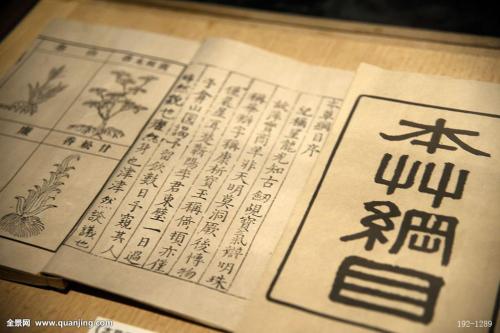 本艸綱目
本草綱目序
紀稱望龍光知古劒覘寶氣辯明珠
故萍實商羊非天明莫洞厥後博物
稱華辯字稱康析寶玉稱倚頓亦僅
僅晨星耳楚蘄陽李君東璧一日過
予弇山園謁予留飲數日予窺其人
睟然貌也癯然身也津津然談議也
甘松香
全景网 www.quanjing.com
192-1289